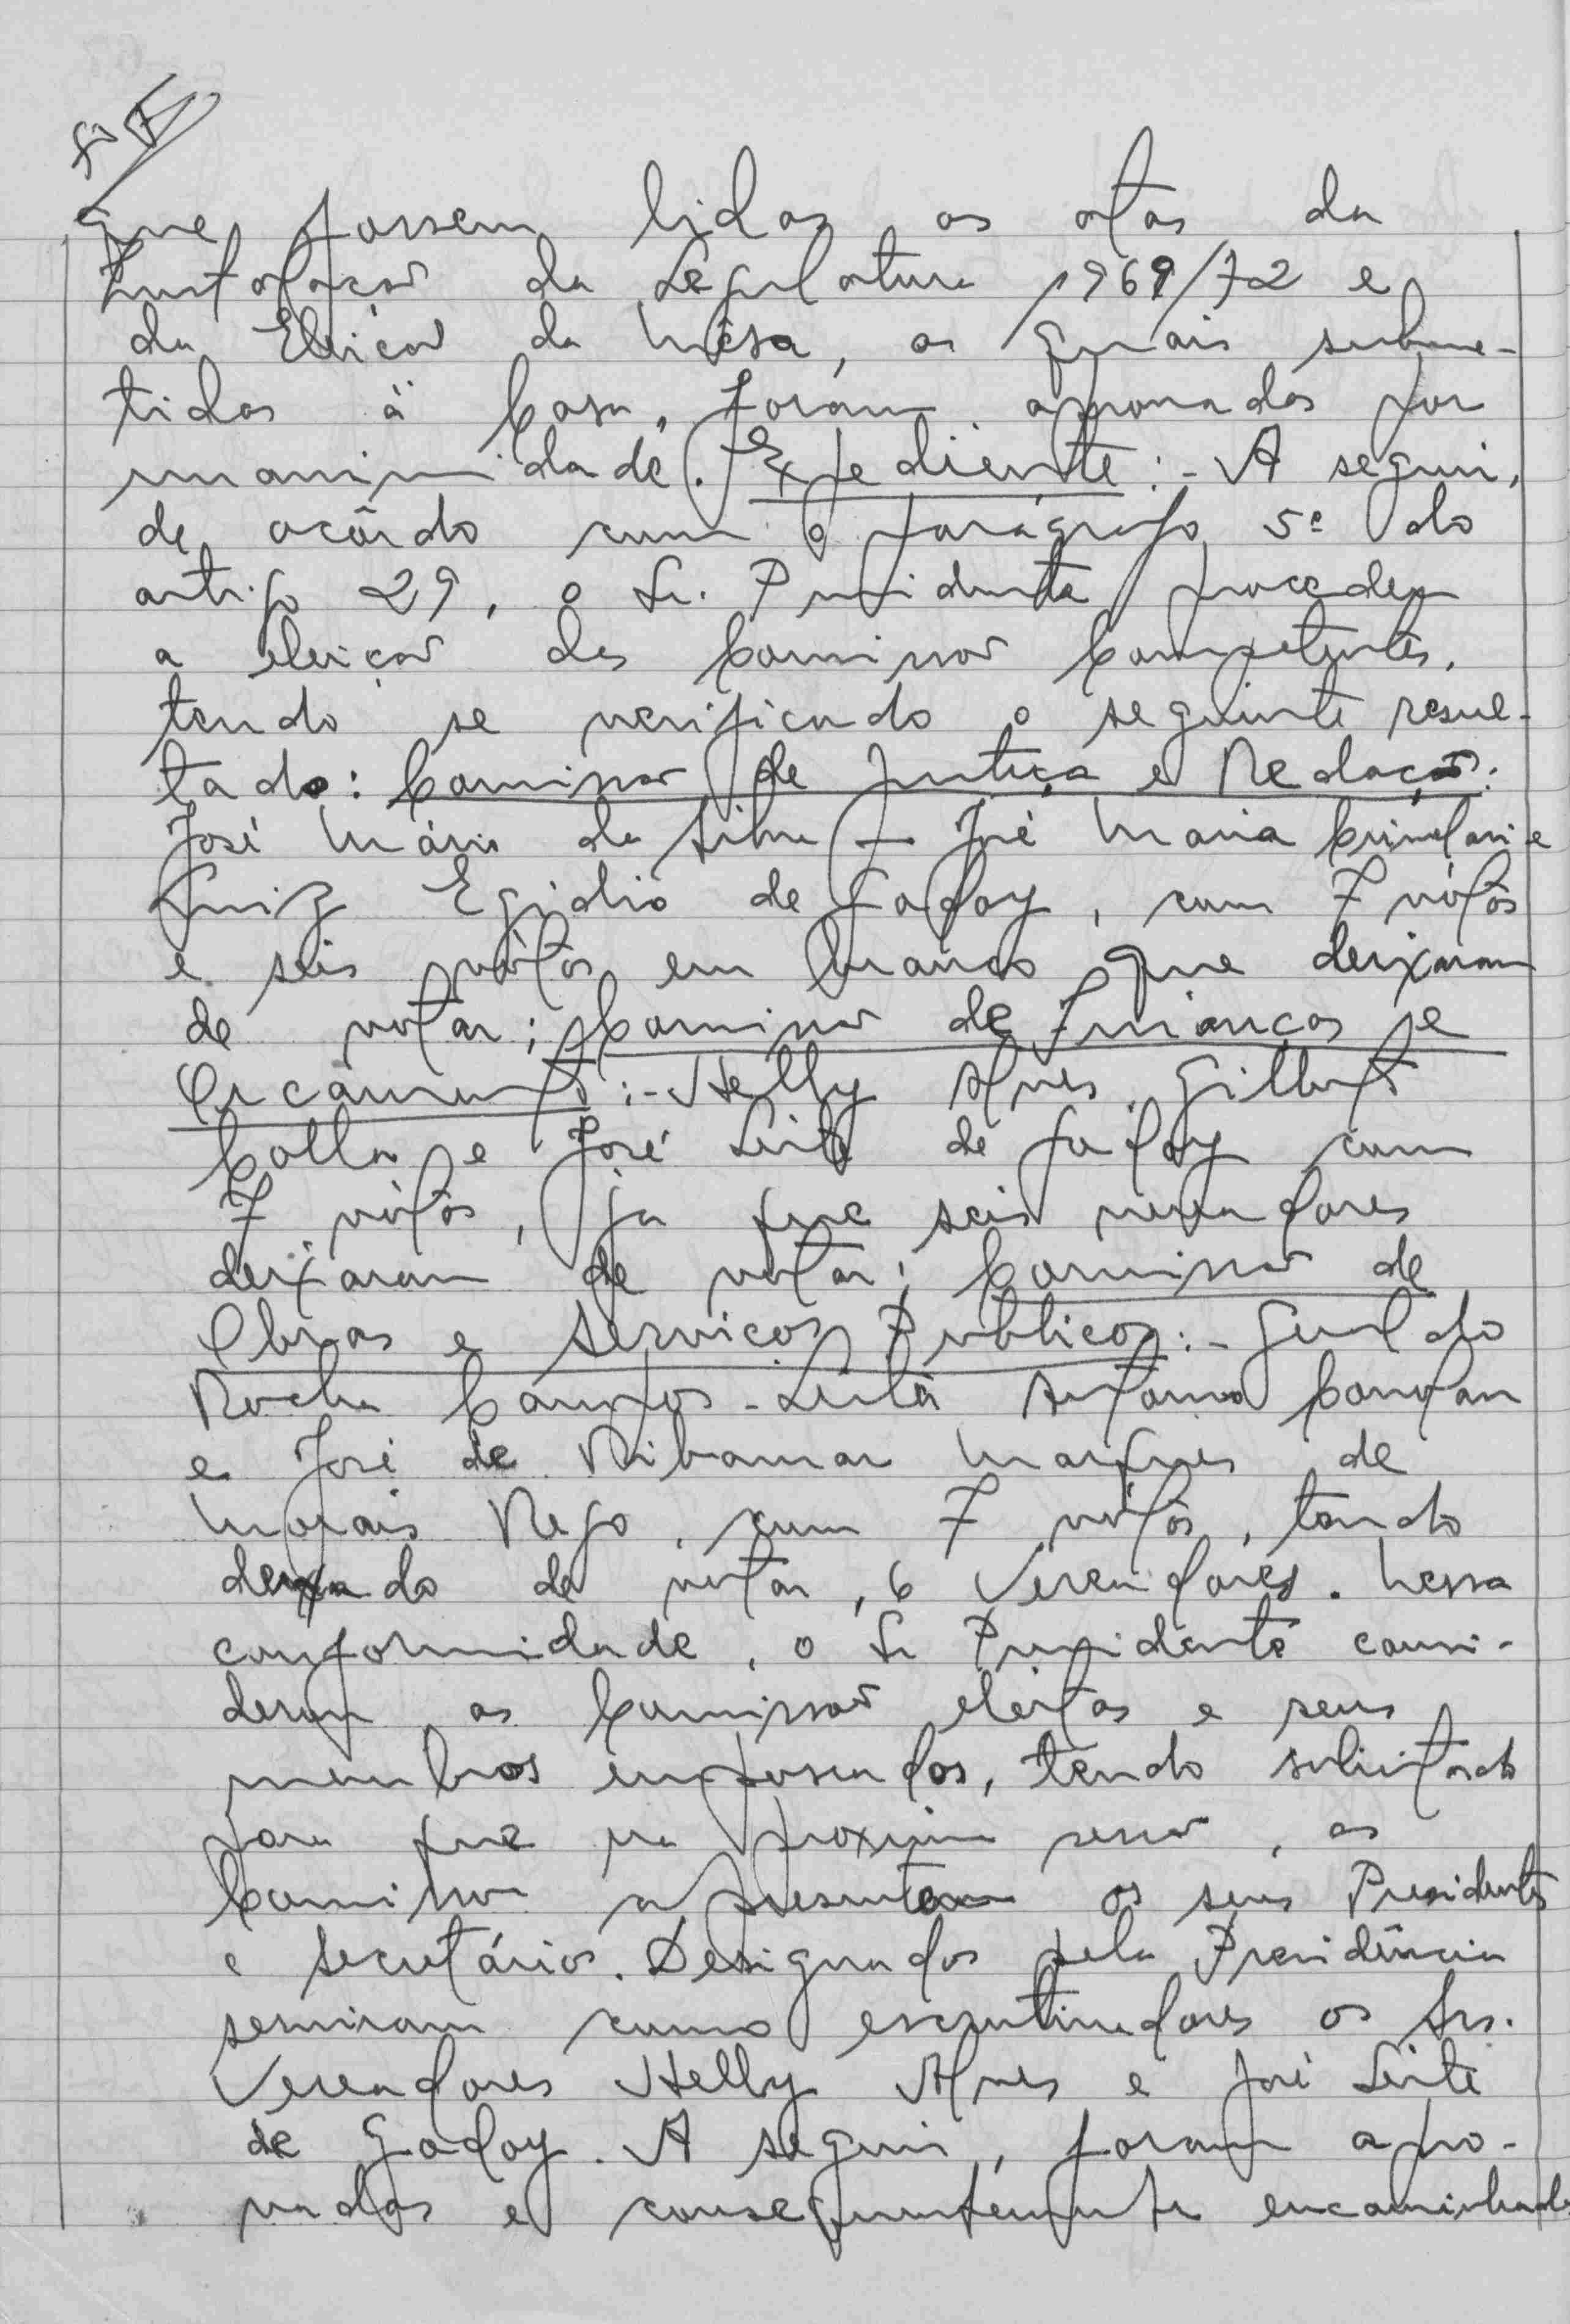 que fossem lidas as atas da
Instalação da Legislatura 1969/72 e
da Eleição da Mêsa, as quais subme-
tidas à Casa, foram aprovadas por
unanimidade. Expediente:- A seguir,
de acôrdo com o parágrafo 5º do
artigo 29, o Sr. Presidente procedeu
a eleição das Comissões Competentes,
tendo se verificado o seguinte resul-
tado: Comissão de Justiça e Redação:
José Mário da Silva - José Maria e
Luiz Egidio de Godoy, com 7 vótos
e seis vótos em branco que deixaram
de votar; Comissão de Finanças e
Orçamento:- Helly Alves, Gilberto
Colla e José Leite de Godoy com
7 vótos, ja que seis vereadores
deixaram de votar; Comissão de
Obras e Serviços Publicos:- Geraldo
Rocha Campos - Antonio
e José de Ribamar Marques de
Morais Rego, com 7 vótos, tendo
deixado de votar, 6 Vereadores. Nessa
conformidade, o Sr Presidente consi-
derou as Comissões eleitas e seus
membros empossados, tendo solicitado
para que na proxima sessão, as
Comissões apresentem os seus Presidentes
e secretários. Designados pela Presidência
serviram como escrutinadores os Srs.
Vereadores Helly Alves e José Leite
de Godoy. A seguir, foram apro-
vadas e consequentemente